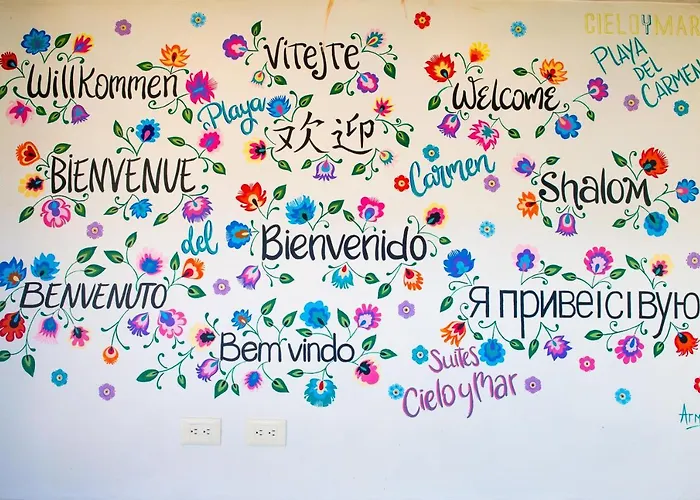 CIELO Y MAR
PLAYA
DEL
CARMEN
Willkommen
Vitejte
Welcome
Playa
欢迎
BIENVENUE
Carmen
Shalom
del
Bienvenido
BENVENUTO
Я привеісівую
Bem vindo
Suites
Cielo y Mar